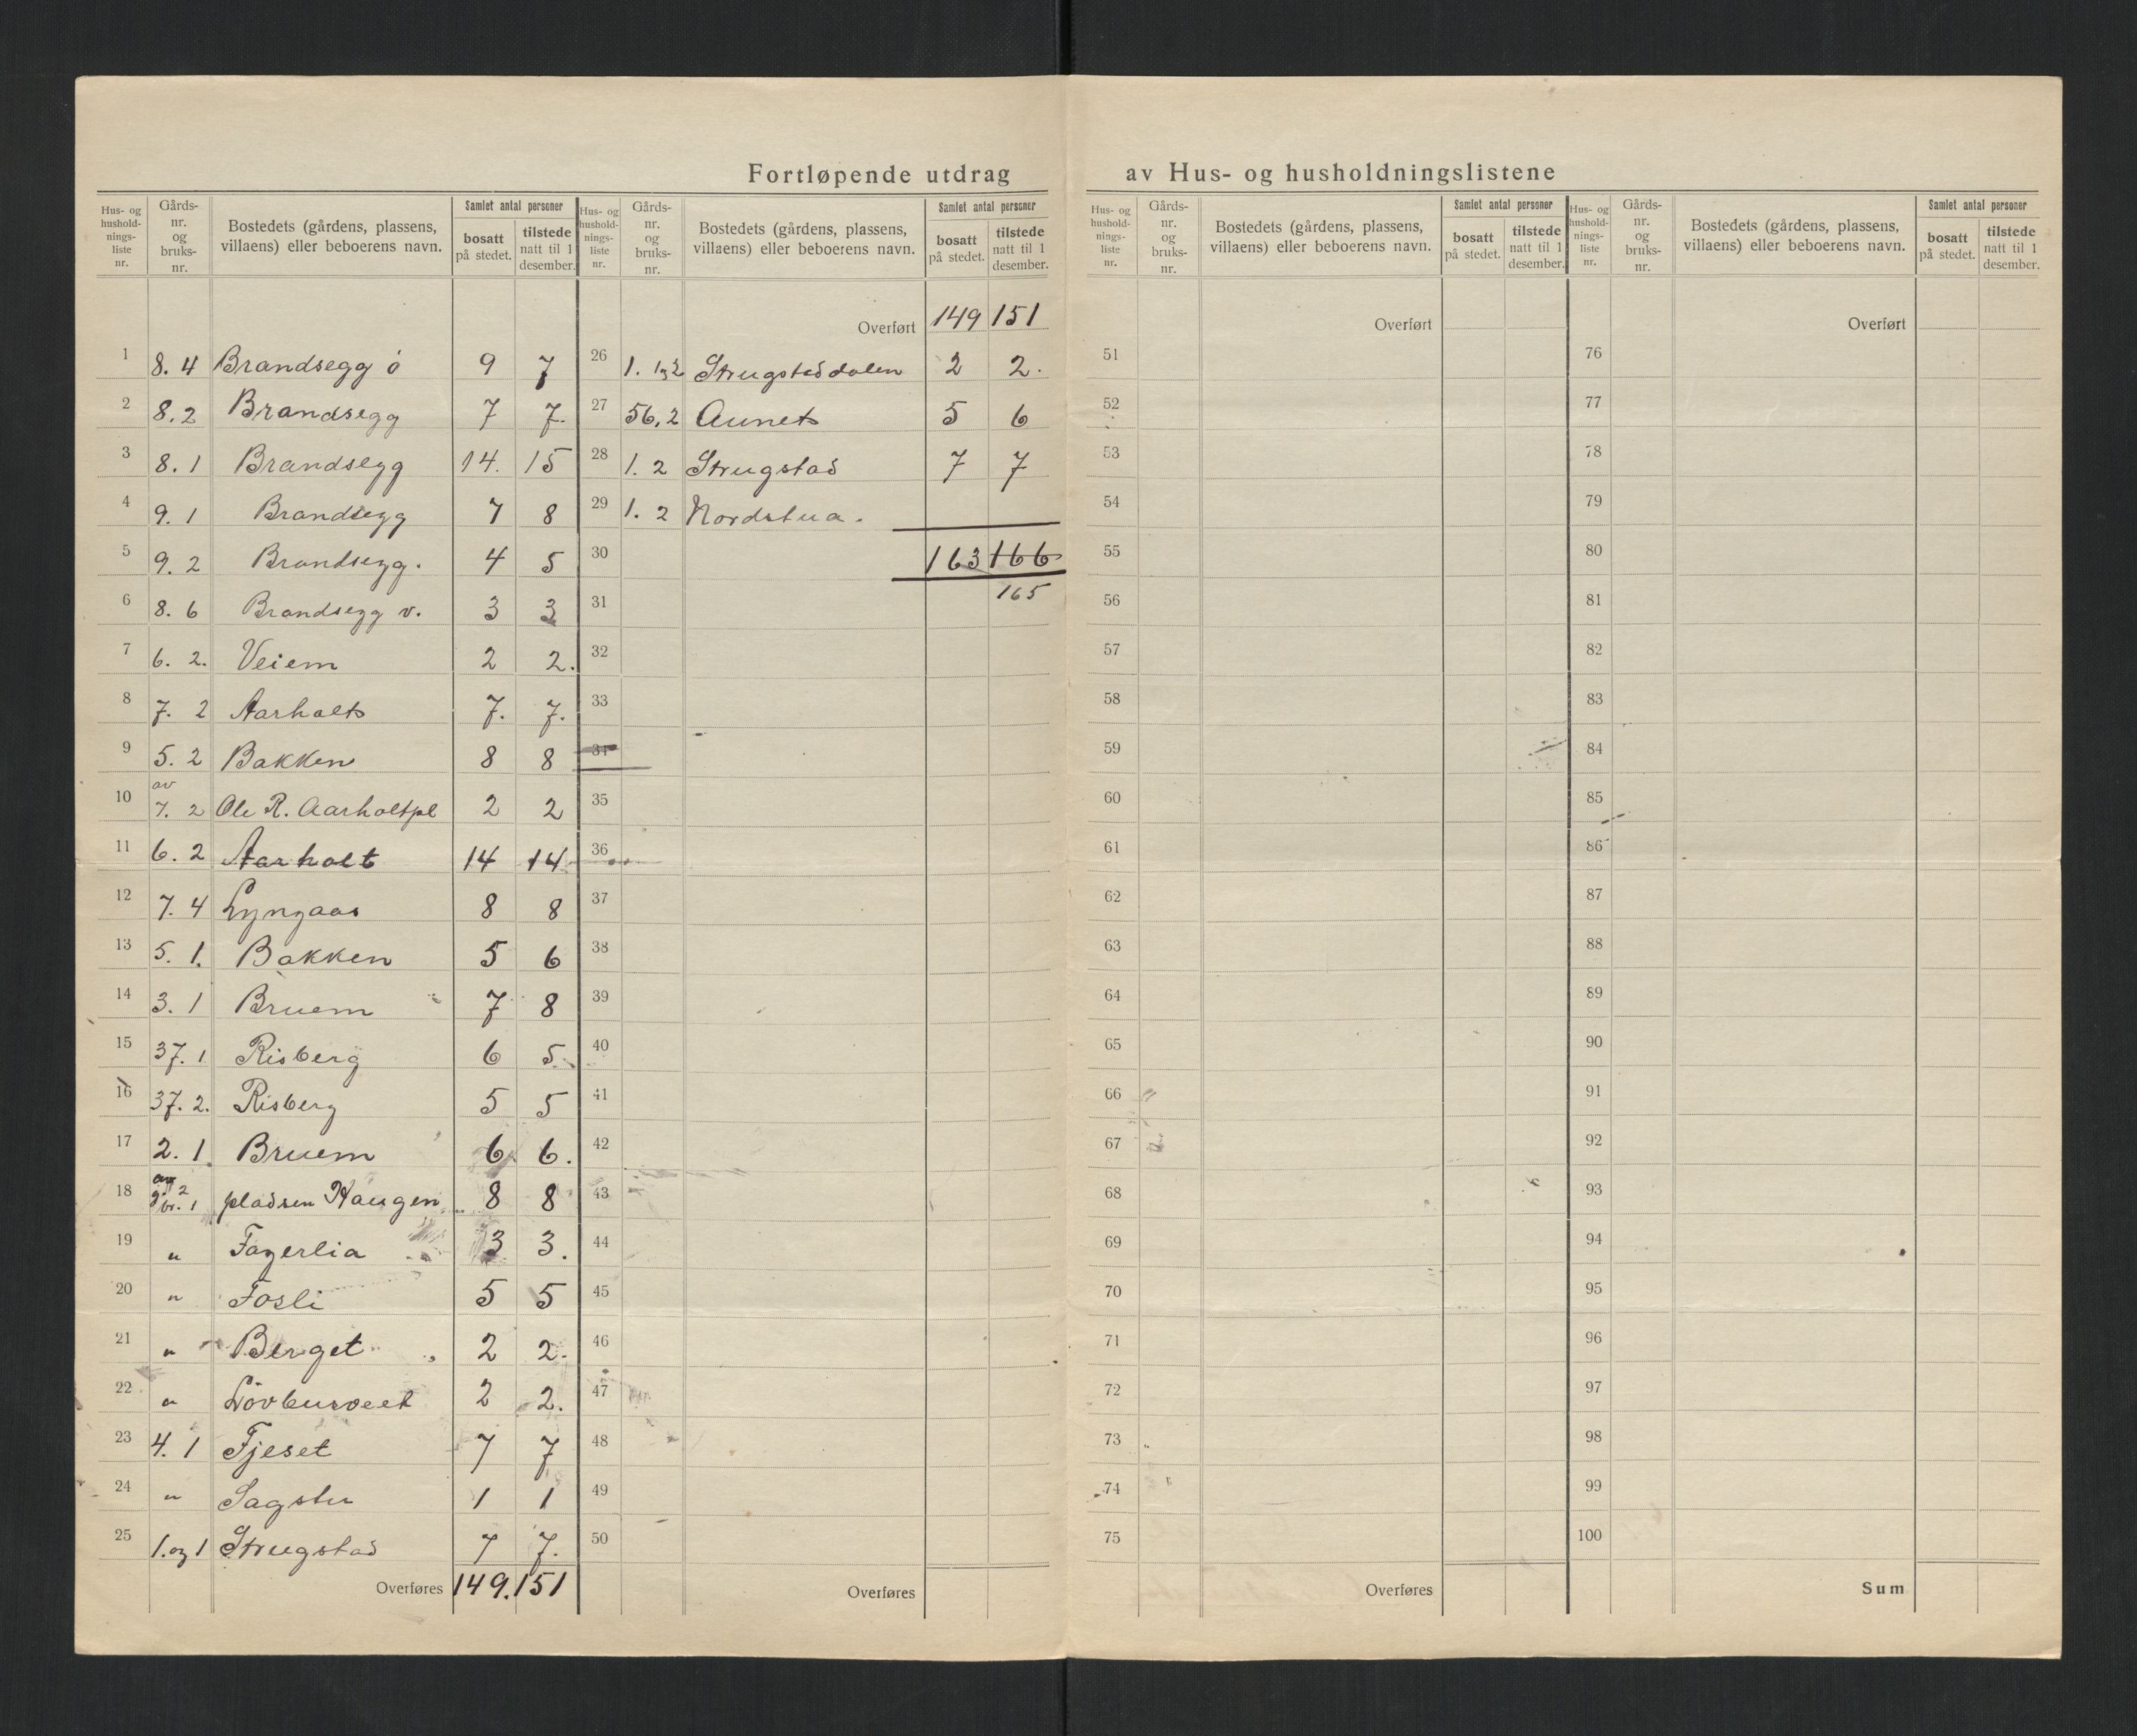 Fortløpende utdrag av Hus- og husholdningslistene
Hus- og hushold-nings-liste nr. Gårds-nr. og bruks-nr. Bostedets (gårdens, plassens, villaens) eller beboerens navn. Samlet antal personer bosatt på stedet. tilstede natt til 1 desember.
1 8. 4 Brandsegg ö 9 7
2 8. 2 Brandsegg 7 7.
3 8. 1 Brandsegg 14. 15
4 9. 1 Brandsegg 7 8
5 9. 2 Brandsegg. 4 5
6 8. 6 Brandsegg v. 3 3
7 6. 2. Veiem 2 2.
8 7. 2 Aarholt 7. 7.
9 5. 2 Bakken 8 8
10 av 7. 2 Ole R. Aarholtpl 2 2
11 6. 2 Aarholt 14 14
12 7. 4 Lyngaas 8 8
13 5. 1. Bakken 5 6
14 3. 1 Bruem 7 8
15 37. 1 Risberg 6 5
16 37. 2. Risberg 5 5
17 2. 1 Bruem 6 6.
18 av g. 2 br. 1 pladsen Haugen 8 8
19 " Fagerlia 3 3.
20 " Fosli 5 5
21 " Berget 2 2.
22 " 2 2.
23 4. 1 Fjeset 7 7
24 " Sagstu 1 1
25 1. og 1 Strugstad 7 7.
Overføres 149. 151
Hus- og hushold-nings-liste nr. Gårds-nr. og bruks-nr. Bostedets (gårdens, plassens, villaens) eller beboerens navn. Samlet antal personer bosatt på stedet. tilstede natt til 1 desember.
Overført 149 151
26 1. 1 og 2 Strugstaddalen 2 2.
27 56. 2 Aunet 5 6
28 1. 2 Strugstad 7 7
29 1. 2 Nordstua.
30 163 166
31 165
32
33
34
35
36
37
38
39
40
41
42
43
44
45
46
47
48
49
50
Overføres
Hus- og hushold-nings-liste nr. Gårds-nr. og bruks-nr. Bostedets (gårdens, plassens, villaens) eller beboerens navn. Samlet antal personer bosatt på stedet. tilstede natt til 1 desember.
Overført
51
52
53
54
55
56
57
58
59
60
61
62
63
64
65
66
67
68
69
70
71
72
73
74
75
Overføres
Hus- og hushold-nings-liste nr. Gårds-nr. og bruks-nr. Bostedets (gårdens, plassens, villaens) eller beboerens navn. Samlet antal personer bosatt på stedet. tilstede natt til 1 desember.
Overført
76
77
78
79
80
81
82
83
84
85
86
87
88
89
90
91
92
93
94
95
96
97
98
99
100
Sum